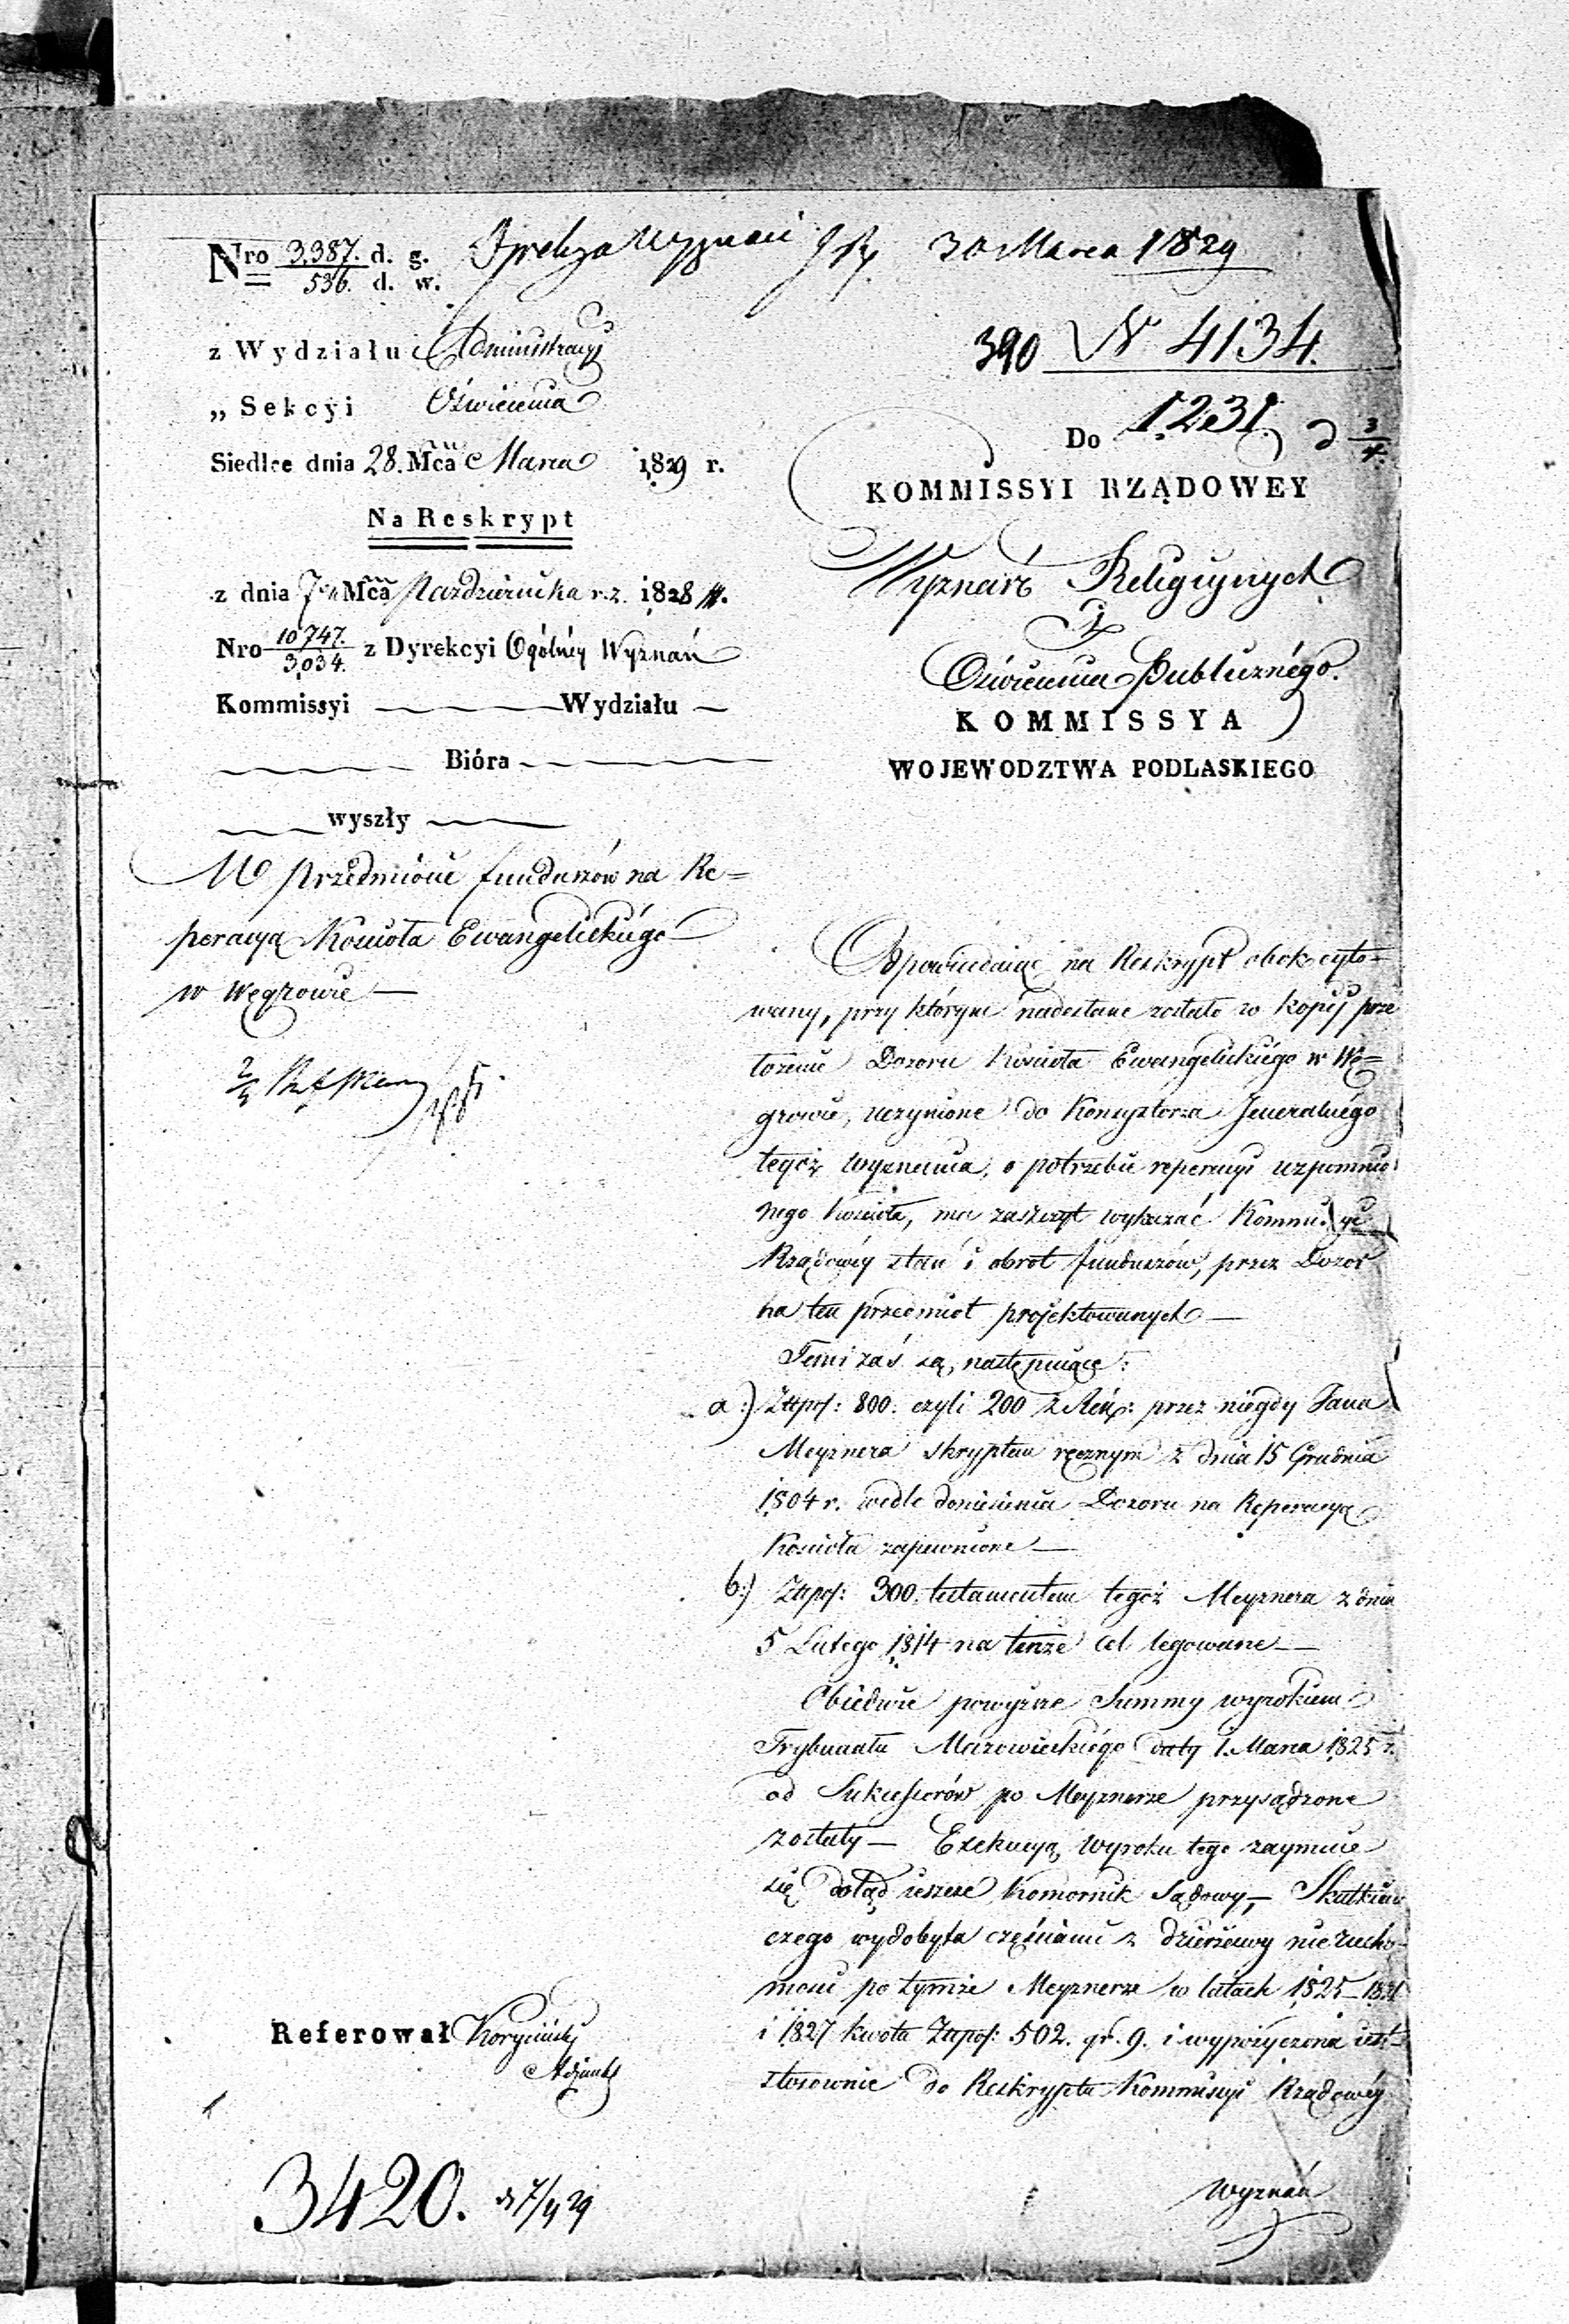 Nro 3,387. d. g.
536. d. w.
30 Marca 1829
z Wydziału Administracyi
390 N 4134.
„ Sekcyi Oświecenia
Do 1231 d 3/4
Siedlce dnia 28. Mca Marca 1829 r.
KOMMISSYI RZĄDOWEY
Na Reskrypt
Wyznań Religiynych
z dnia 7 Mca Pazdziernika r. z. 1828
i
Nro 10747./3034. z Dyrekcyi Ogólnéy Wyznań
Oświecenia Publicznégo.
Kommissyi Wydziału
KOMMISSYA
Bióra
WOJEWODZTWA PODLASKIEGO
wyszły
W przedmiocie funduszów na Re=
peracyą Kościoła Ewangelickiégo
w Węgrowie —
Odpowiadaiąc na Reskrypt obok cyto=
wany, przy którym nadesłane zostało w kopij prze
łożenie Dozoru Kościoła Ewangelickiégo w Wę=
growie, uczynione do Konsystorza Jeneralnégo
tegoż wyznania, o potrzebie reperacyi wzpomnio
nego kościoła, ma zaszczyt wykazać Kommissyi
Rządowéy stan i obrot funduszów, przez Dozor
na ten przedmiot projektowanych —
Temi zaś są, następuiące:
a:) Złłpol: 800. czyli 200 z Reń: przez niegdy Jana
Meyznera skryptem ręcznym z dnia 15 Grudnia
1804 r. wedle doniesienia Dozoru na Reperacyą
Kościoła zapewnione —
b:) Złłpol: 300. testamentem tegoż Meyznera z dnia
5 Lutego 1814 na tenże cel legowane —
Obiedwie powyższe Summy wyrokiem
Trybunału Mazowieckiégo daty 1. Marca 1825 r.
od Sukcessorów po Meyznerze przysądzone
zostały — Exekucyą wyroku tego zaymuie
się dotąd ieszcze Komornik Sądowy, — Skutkiem
czego wydobyta częściami z dzierżawy nierucho=
mości po tymże Meyznerze w latach 1825
i 1827 kwota Złłpol: 502. gr. 9. i wypożyczona iest
stosownie do Reskryptu Kommissyi Rządowéy
Referował Koryciński
Adjunkt
3420. d 7/4 29
Wyznań